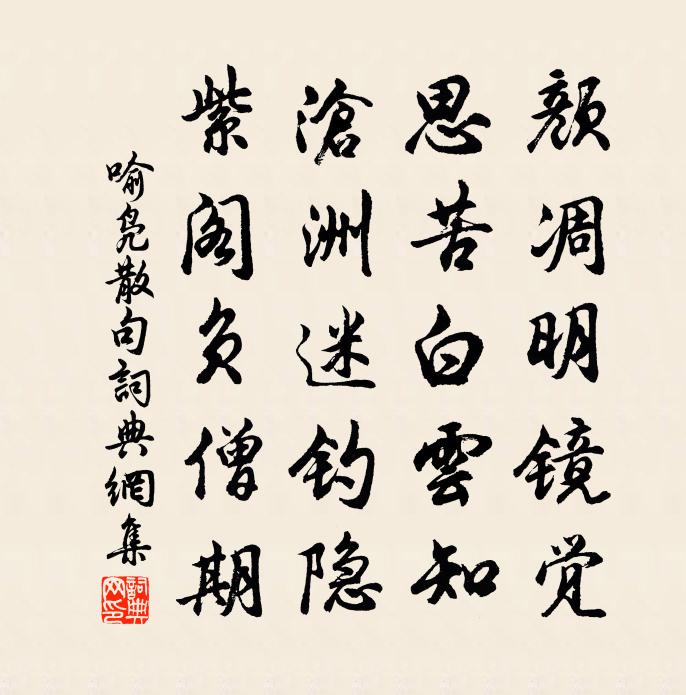 颜凋明镜觉
思苦白雲知
滄洲迷钓隐
紫阁负僧期
喻凫散句詞典網集
詞典网印